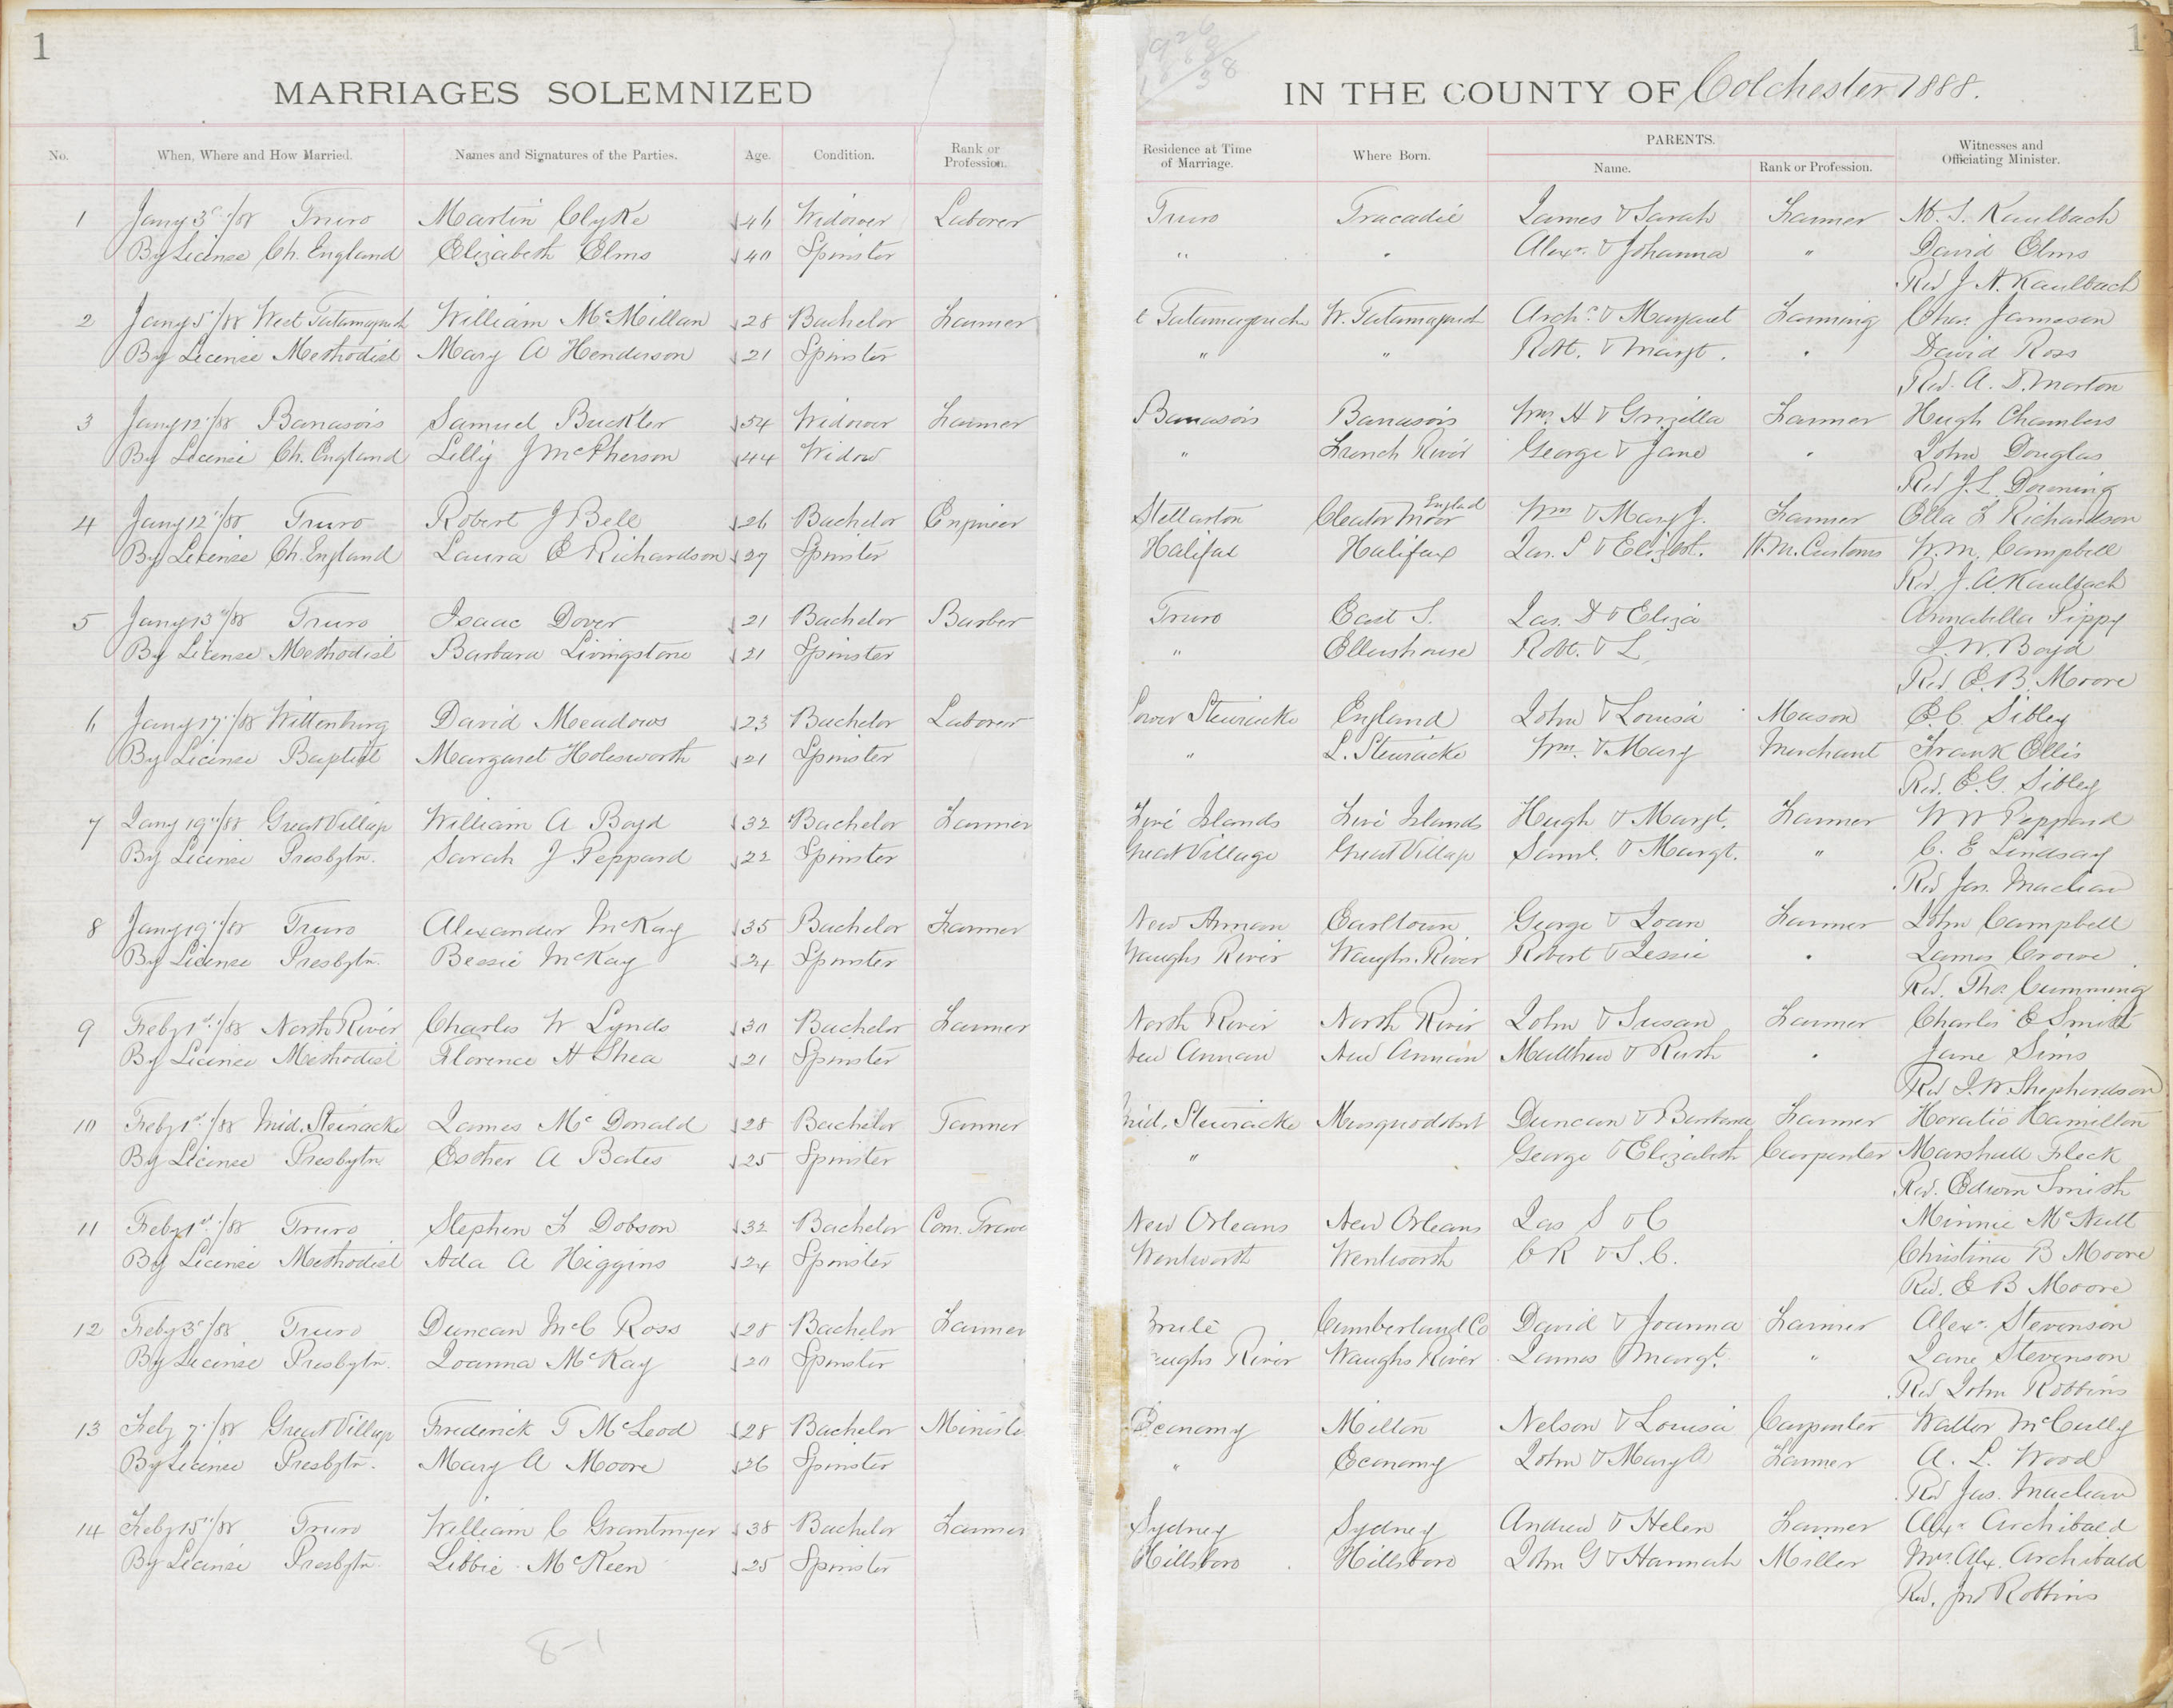 1
1
MARRIAGES SOLEMNIZED IN THE COUNTY OF Colchester 1888.
No. When, Where and How Married. Names and Signatures of the Parties. Age. Condition. Rank or Profession. Residence at Time of Marriage. Where Born. PARENTS. Name. Rank or Profession. Witnesses and Officiating Minister.
1 Jany 3d/88 Truro Martin Clyke 46 Widower Laborer Truro Tracadie James & Sarah Farmer M. S. Kaulbach
By License Ch. England Elizabeth Elms 40 Spinster " " Alexr. & Johanna " David Elms
Rev J. A. Kaulbach
2 Jany 5"/88 West Tatamagouch William McMillan 28 Bachelor Farmer t Tatamagouche W. Tatamagouch Archd. & Margaret Farming Chas. Jameson
By License Methodist Mary A Henderson 21 Spinster " " Robt. & Margt. " David Ross
Rev. A. D. Morton
3 Jany 12"/88 Banasois Samuel Buckler 54 Widower Farmer Banasois Banasois Wm. H & Grizella Farmer Hugh Chambers
By License Ch. England Lilly J McPherson 44 Widow " French River George & Jane " John Douglas
Rev J. L. Downing
4 Jany 12"/88 Truro Robert J Bell 26 Bachelor Engineer Stellarton Cleator Moor England Wm & Mary J. Farmer Ella F Richardson
By License Ch. England Laura E Richardson 27 Spinster Halifax Halifax Jas. S & Elizbt. H.M. Customs W. M. Campbell
Rev. J. A. Kaulbach
5 Jany 13"/88 Truro Isaac Dover 21 Bachelor Barber Truro East S. Jas. D & Eliza Annabella Pippy
By License Methodist Barbara Livingstone 21 Spinster " Ellershouse Robt. & L J. W. Boyd
Rev. E. B. Moore
6 Jany 17"/88 Wittenburg David Meadows 23 Bachelor Laborer Lower Stewiacke England John & Louisa Mason E. C. Sibley
By License Baptist Margaret Holesworth 21 Spinster " L. Stewiacke Wm. & Mary Merchant Frank Ellis
Rev. E. G. Sibley
7 Jany 19"/88 Great Village William A Boyd 32 Bachelor Farmer Five Islands Five Islands Hugh & Margt. Farmer W W Peppard
By License Presbytn. Sarah J Peppard 22 Spinster Great Village Great Village Saml. & Margt. " C. E Lindsay
Rev Jas. Maclean
8 Jany 19"/88 Truro Alexander McKay 35 Bachelor Farmer New Annan Earltown George & Joan Farmer John Campbell
By License Presbytn. Bessie McKay 24 Spinster Waughs River Waughs River Robert & Jessie " James Crowe
Rev. Thos. Cumming
9 Feby 1st/88 North River Charles W Lynds 30 Bachelor Farmer North River North River John & Susan Farmer Charles E Smith
By License Methodist Florence H Shea 21 Spinster New Annan New Annan Matthew & Ruth " Jane Sims
Rev J. W Shepherdson
10 Feby 1st/88 Mid. Stewiacke James McDonald 28 Bachelor Tanner Mid. Stewiacke Musquodobit Duncan & Barbara Farmer Horatio Hamilton
By License Presbytn. Esther A Bates 25 Spinster " George & Elizabeth Carpenter Marshall Fleck
Rev. Edwin Smith
11 Feby 1st/88 Truro Stephen F Dobson 32 Bachelor Com. Trave New Orleans New Orleans Jas S & C Minnie McNutt
By License Methodist Ada A Higgins 24 Spinster Wentworth Wentworth C R & S. C. Christina B Moore
Rev. E B Moore
12 Feby 3d/88 Truro Duncan McC Ross 28 Bachelor Farmer Cumberland Co David & Joanna Farmer Alexr. Stevenson
By License Presbytn. Joanna McKay 20 Spinster aughs River Waughs River James & Margt. " Jane Stevenson
Rev John Robbins
13 Feby 7"/88 Great Village Frederick T McLeod 28 Bachelor Ministe Economy Milton Nelson & Louisa Carpenter Walter McCully
By License Presbytn. Mary A Moore 26 Spinster " Economy John & Mary A Farmer A. L. Wood
Rev Jas. Maclean
14 Feby 15"/88 Truro William C Grantmyer 38 Bachelor Farmer Sydney Sydney Andrew & Helen Farmer Alexr Archibald
By License Presbytn. Libbie McKeen 25 Spinster Hillsboro Hillsboro John G & Hannah Miller Mrs. Alx. Archibald
Rev. Jno Robbins
8-1